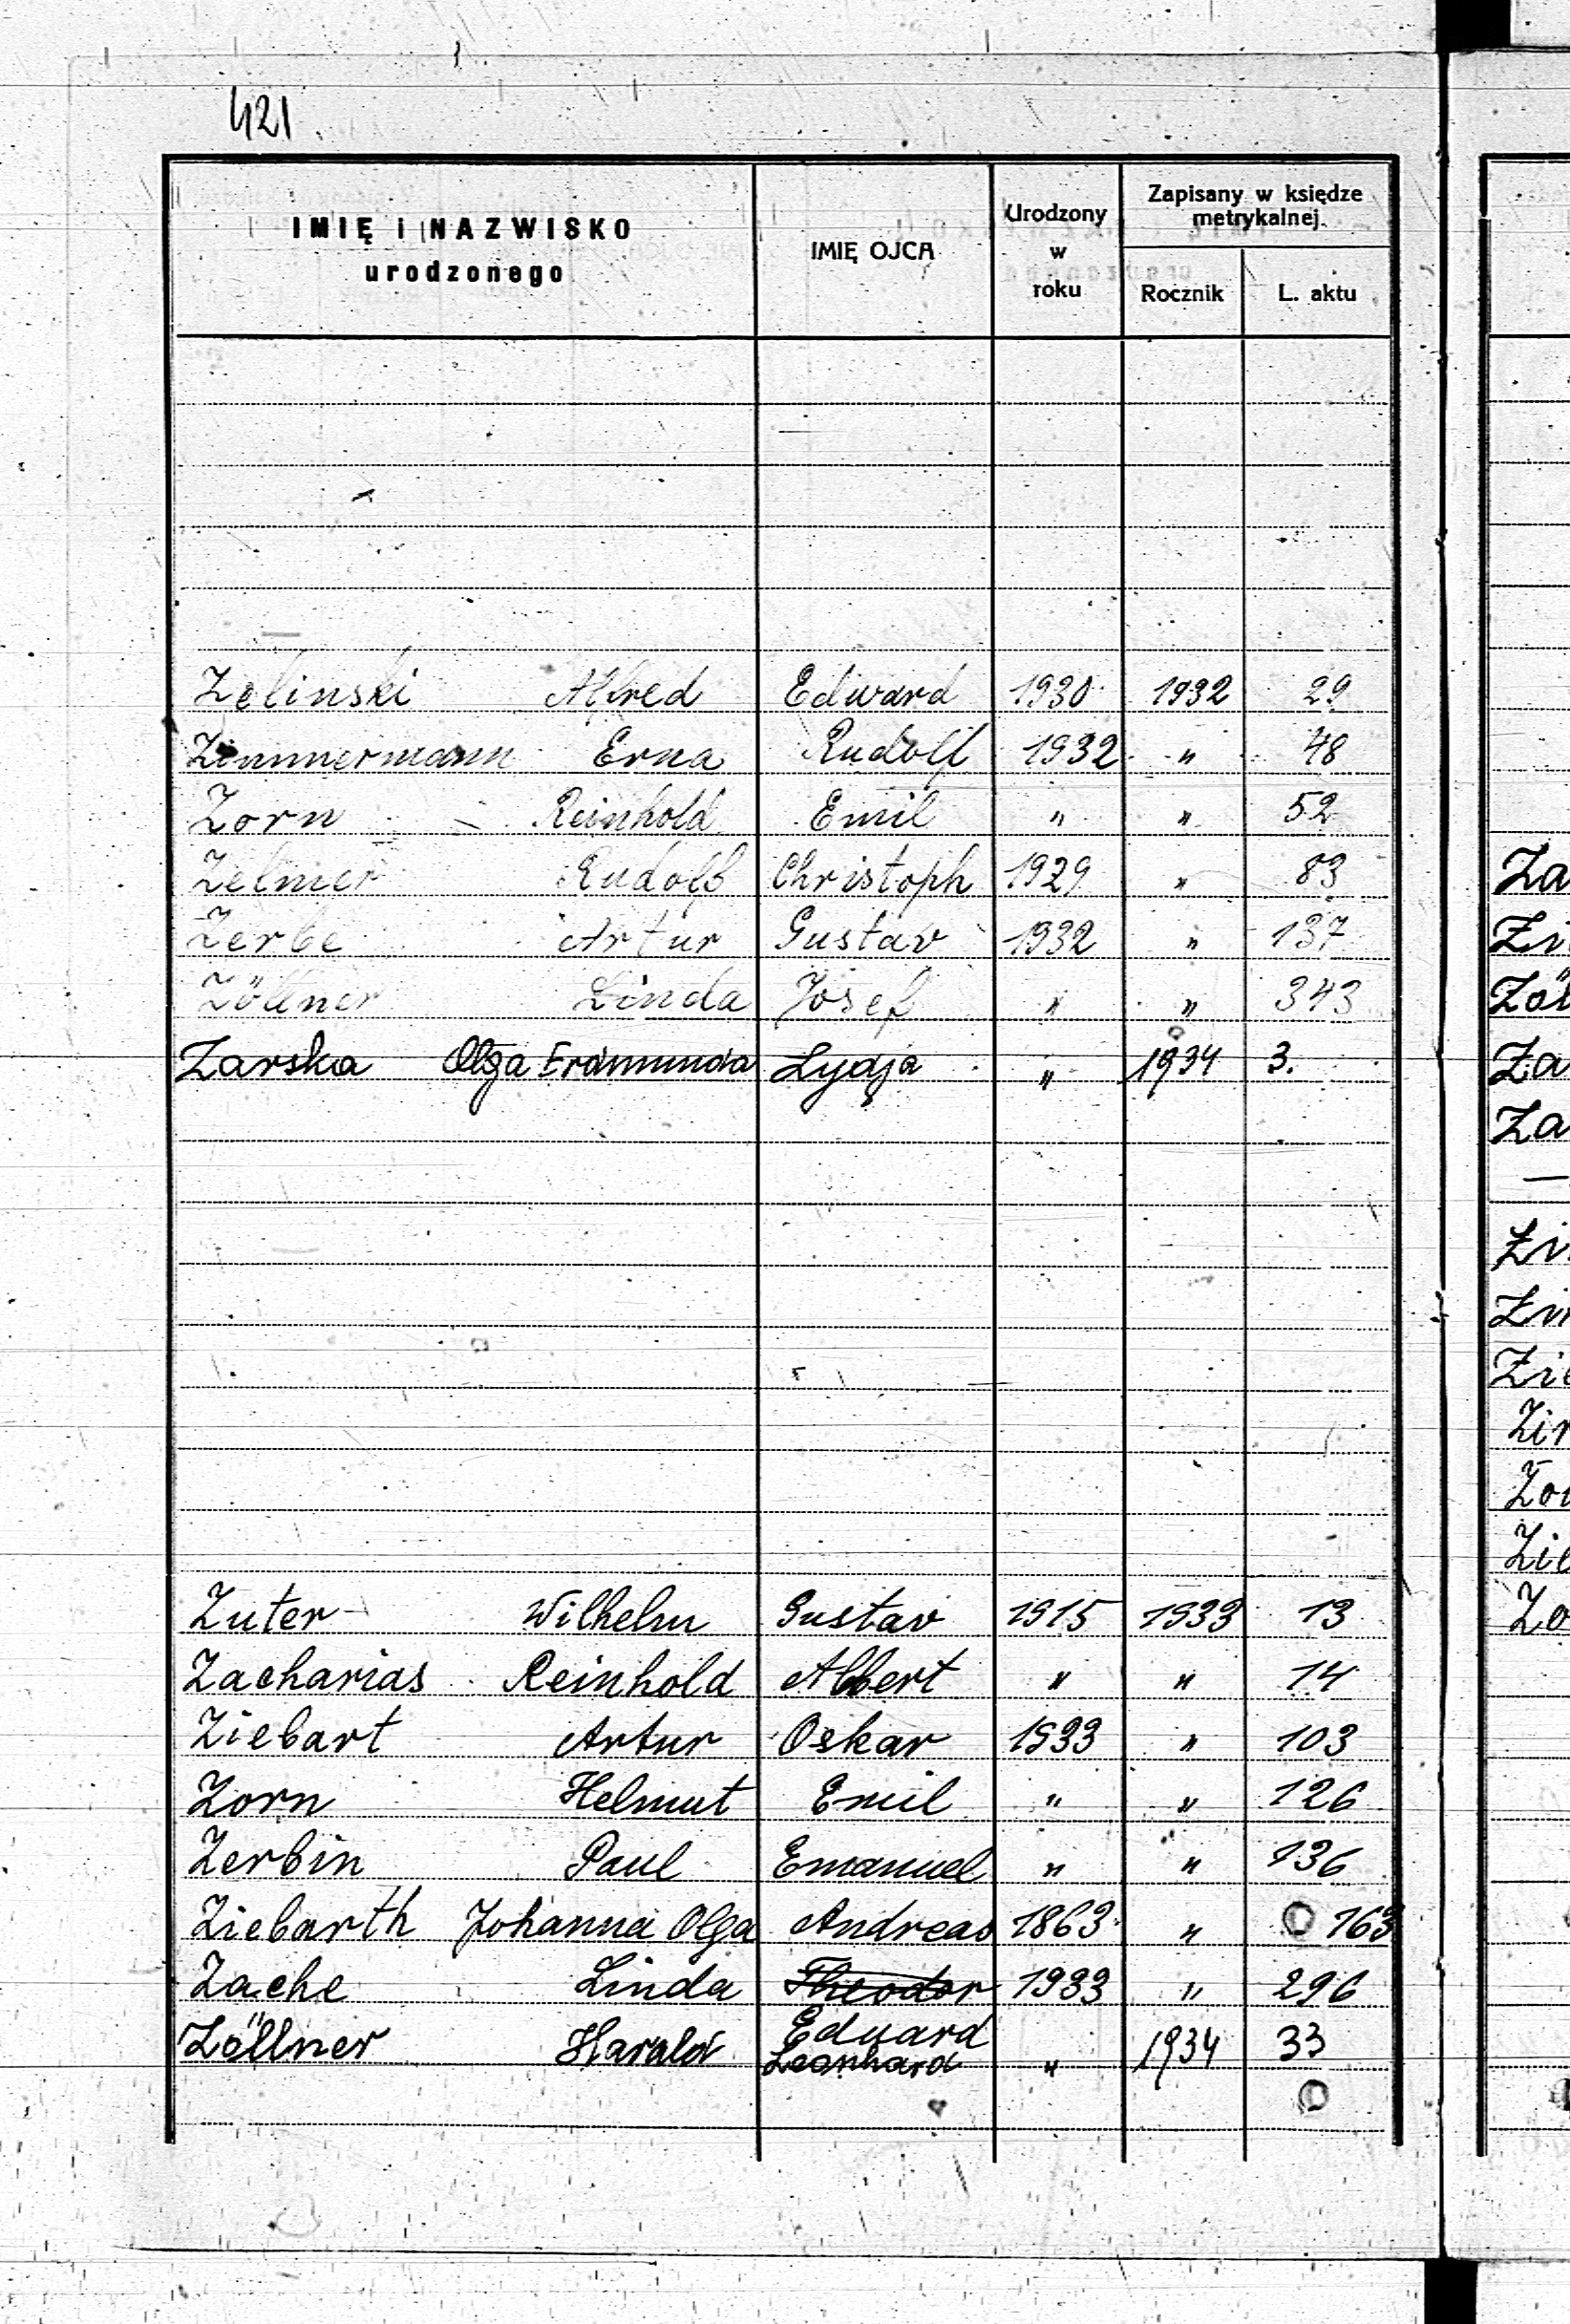 421.
IMIĘ i NAZWISKO urodzonego IMIĘ OJCA Urodzony w roku Zapisany w księdze metrykalnej Rocznik L. aktu
Zelinski Alfred Edward 1930 1932 29
Zimmermann Erna Rudolf 1932 " 48
Zorn Reinhold Emil " " 52
Zelmer Rudolf Christoph 1929 " 83
Za
Zerbe Artur Gustav 1932 " 137
Zi
Zöllner Linda Josef " " 343
Zöl
Zarska Olga Erdmunda Lydja " 1934 3.
Za
Za
Zi
Zi
Zi
Zir
Zo
Zi
Zuter Wilhelm Gustav 1915 1933 13
Zo
Zacharias Reinhold Albert " " 14
Ziebart Artur Oskar 1933 " 103
Zorn Helmut Emil " " 126
Zerbin Paul Emanuel " " 136
Ziebarth Johanna Olga Andreas 1863 " 163
Zache Linda Theodor 1933 " 296
Eduard
Zöllner Harald Leonhard " 1934 33